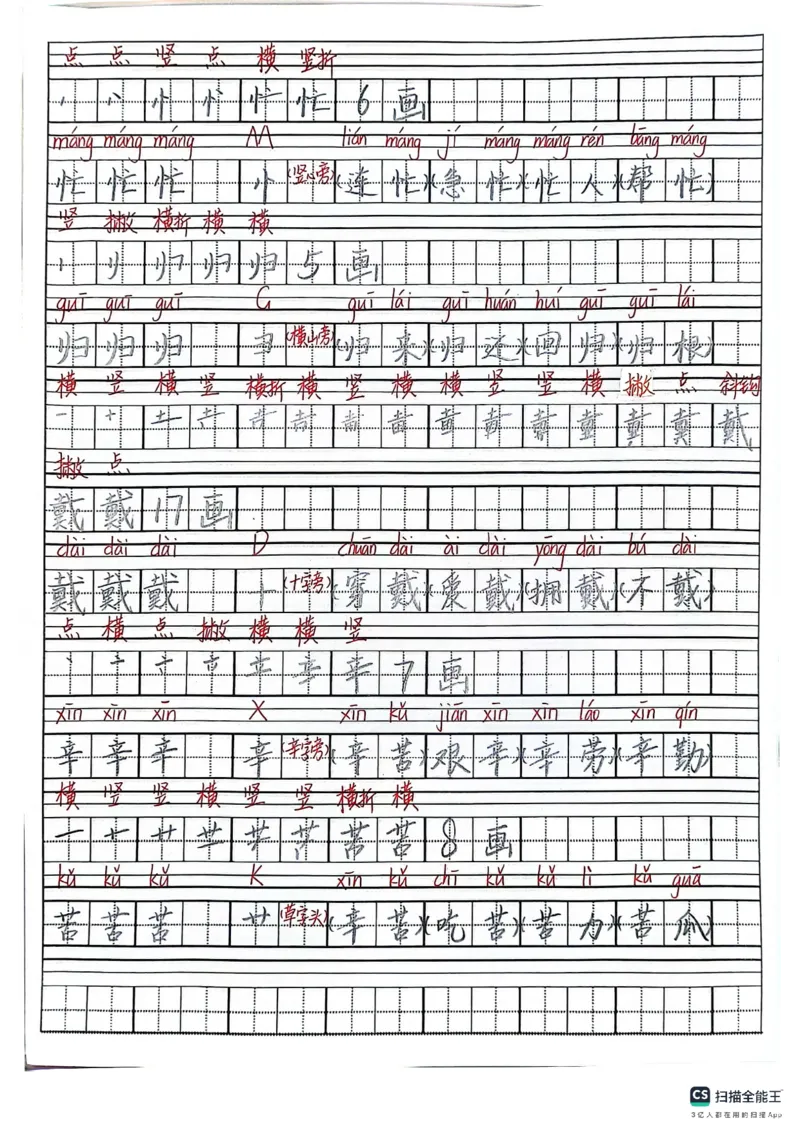 点 点 竖 点 横 竖折
忙 忙 6 画
máng máng máng M lián máng jí máng máng rén bāng máng
忙 忙 忙 忄 (竖心旁) (连 忙) (急 忙) (忙 人) (帮 忙)
竖 撇 横折 横 横
归 归 归 5 画
guī guī guī G guī lái guī huán huí guī guī lái
归 归 归 彐 (横山旁) (归 来) (归 还) (回 归) (归 根)
横 竖 横 竖 横折 横 竖 横 横 竖 竖 横 撇 点 斜钩
一 十 土
撇 点
戴 戴 17 画
dài dài dài D chuān dài ài dài yōng dài bú dài
戴 戴 戴 十 (十字旁) (穿 戴) (爱 戴) (拥 戴) (不 戴)
点 横 点 撇 横 横 竖
丶 亠 立 辛 辛 7 画
xīn xīn xīn X xīn kǔ jiān xīn xīn láo xīn qín
辛 辛 辛 辛 (辛字旁) (辛 苦) (艰 辛) (辛 劳) (辛 勤)
横 竖 竖 横 竖 竖 横折 横
一 十 艹 苦 苦 8 画
kǔ kǔ kǔ K xīn kǔ chī kǔ kǔ lì kǔ guā
苦 苦 苦 艹 (草字头) (辛 苦) (吃 苦) (苦 力) (苦 瓜)
CS 扫描全能王
3亿人都在用的扫描App